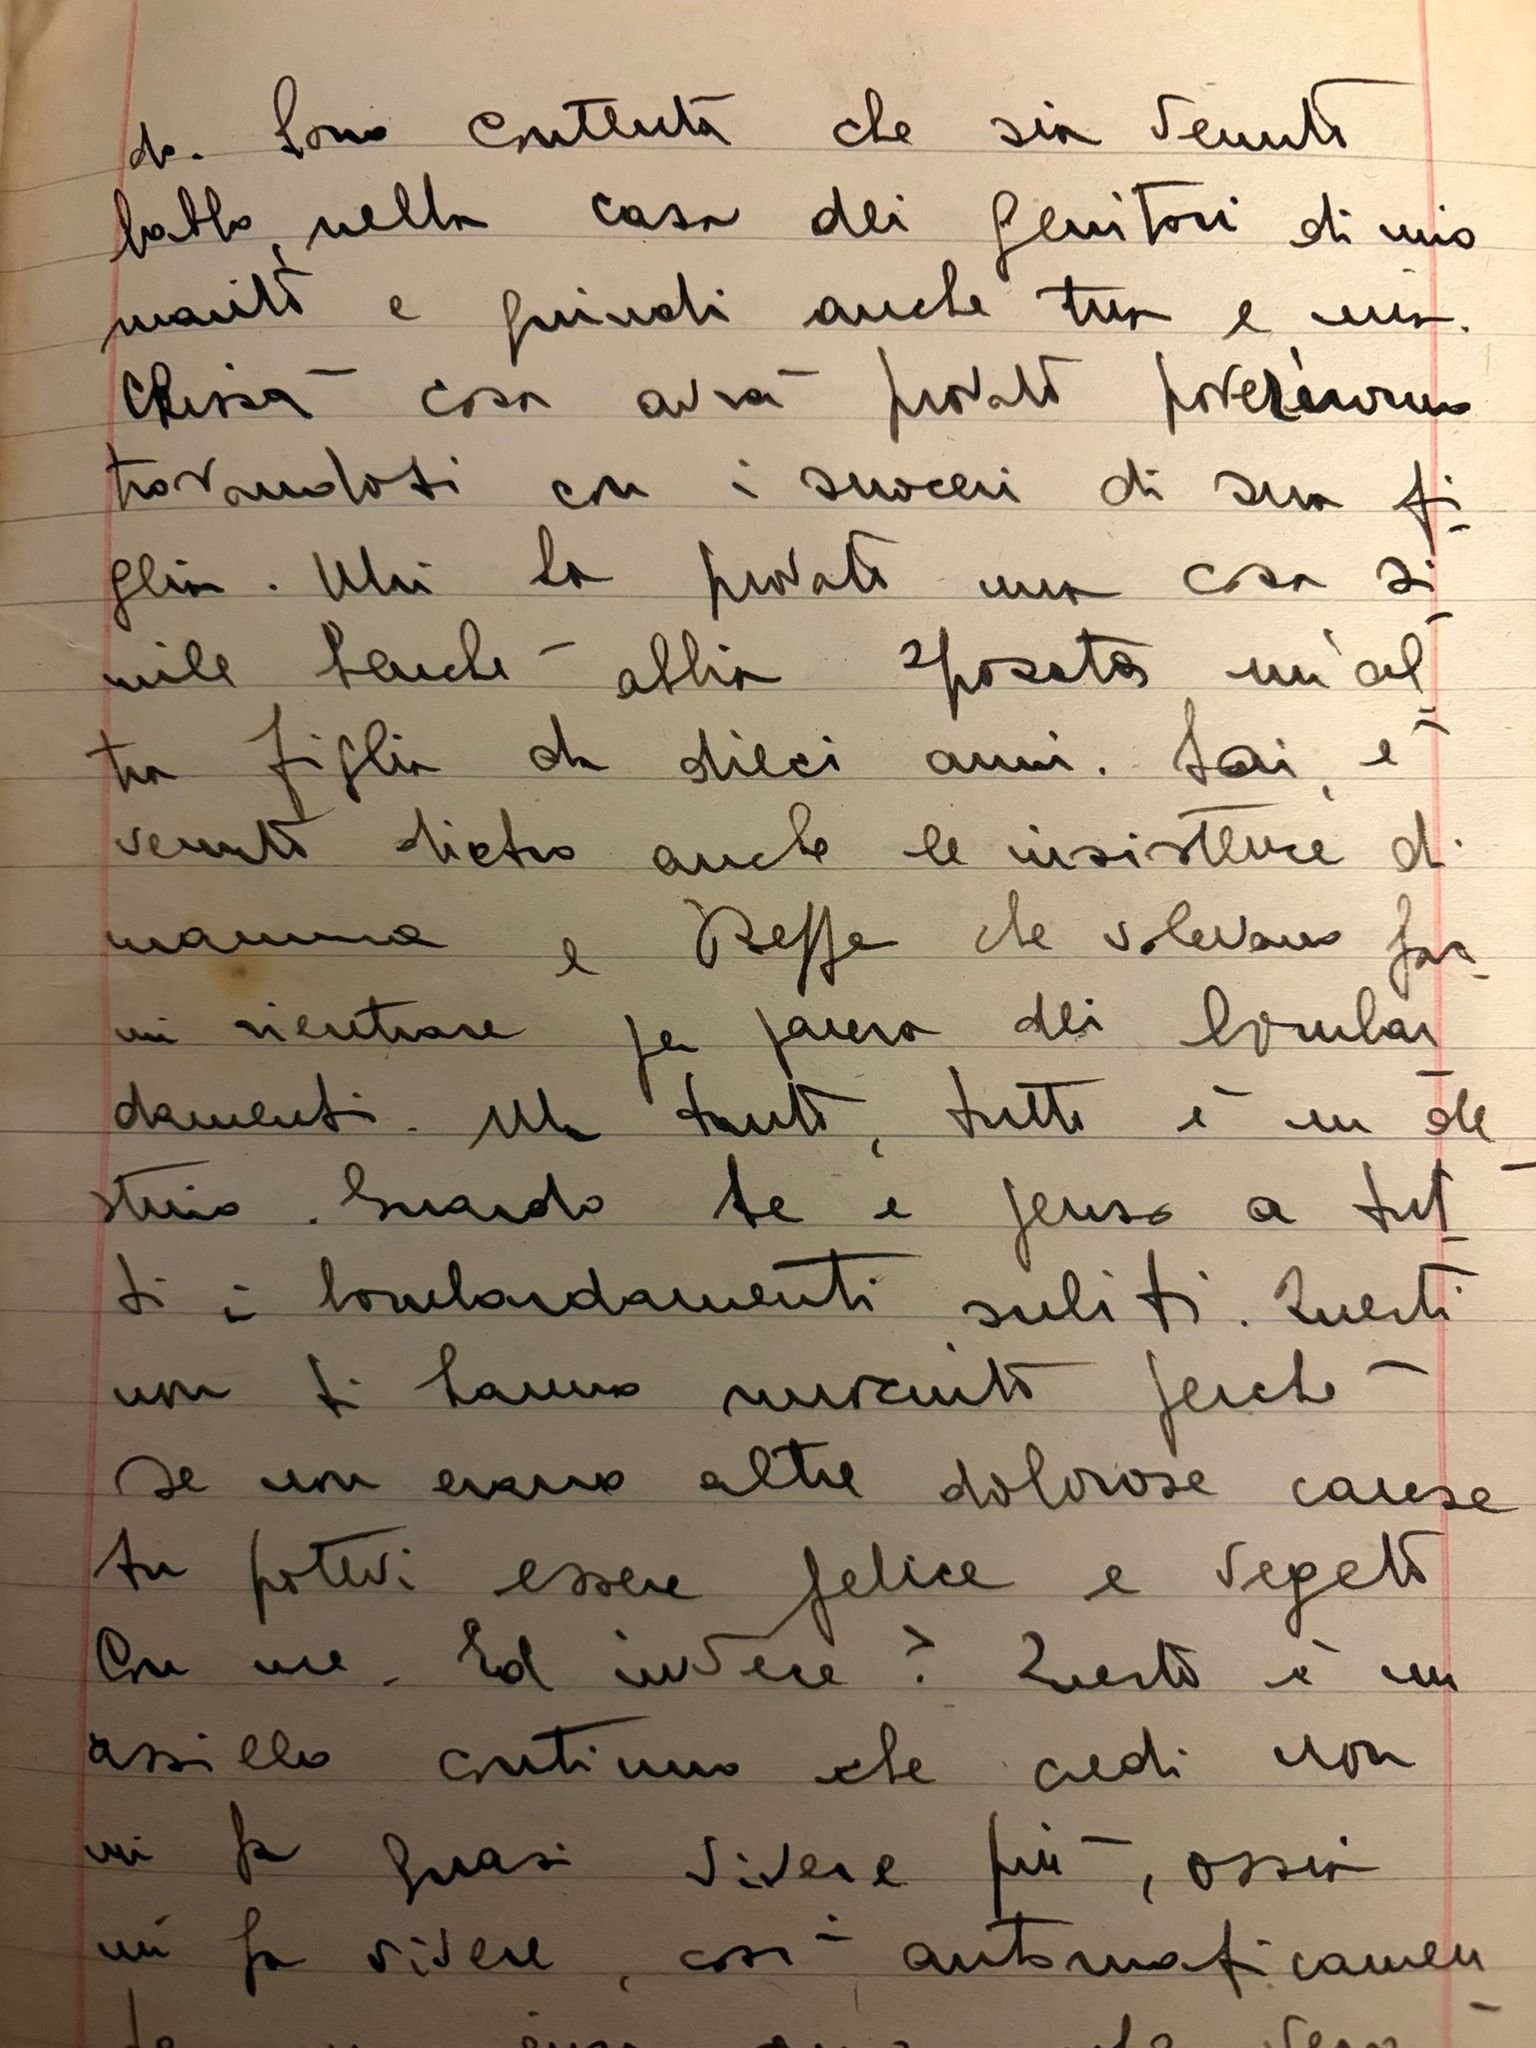 do. Sono contenta che sia venuto
babbo, nella casa dei genitori di mio
marito e quindi anche tua e mia.
Chissà cosa avrà provato poverinomo
trovandosi con i suoceri di sua fi-
glia. Mai ha provato una cosa si-
mile benché abbia sposata un'al-
tra figlia da dieci anni. Sai, è
venuto dietro anche le insistenze di
mamma e Beppe che volevano far-
mi rientrare per paura dei bombar-
damenti. Ma tanto, tutto è un de-
stino. Guardo te e penso a tut-
ti i bombardamenti subiti. Questi
non ti hanno nuociuto perché
se non erano altre dolorose cause
tu potevi essere felice e vegeto
con me. Ed invece? Questo è un
assillo continuo che credi non
mi fa quasi vivere più, ossia
mi fa vivere, così automaticamen-